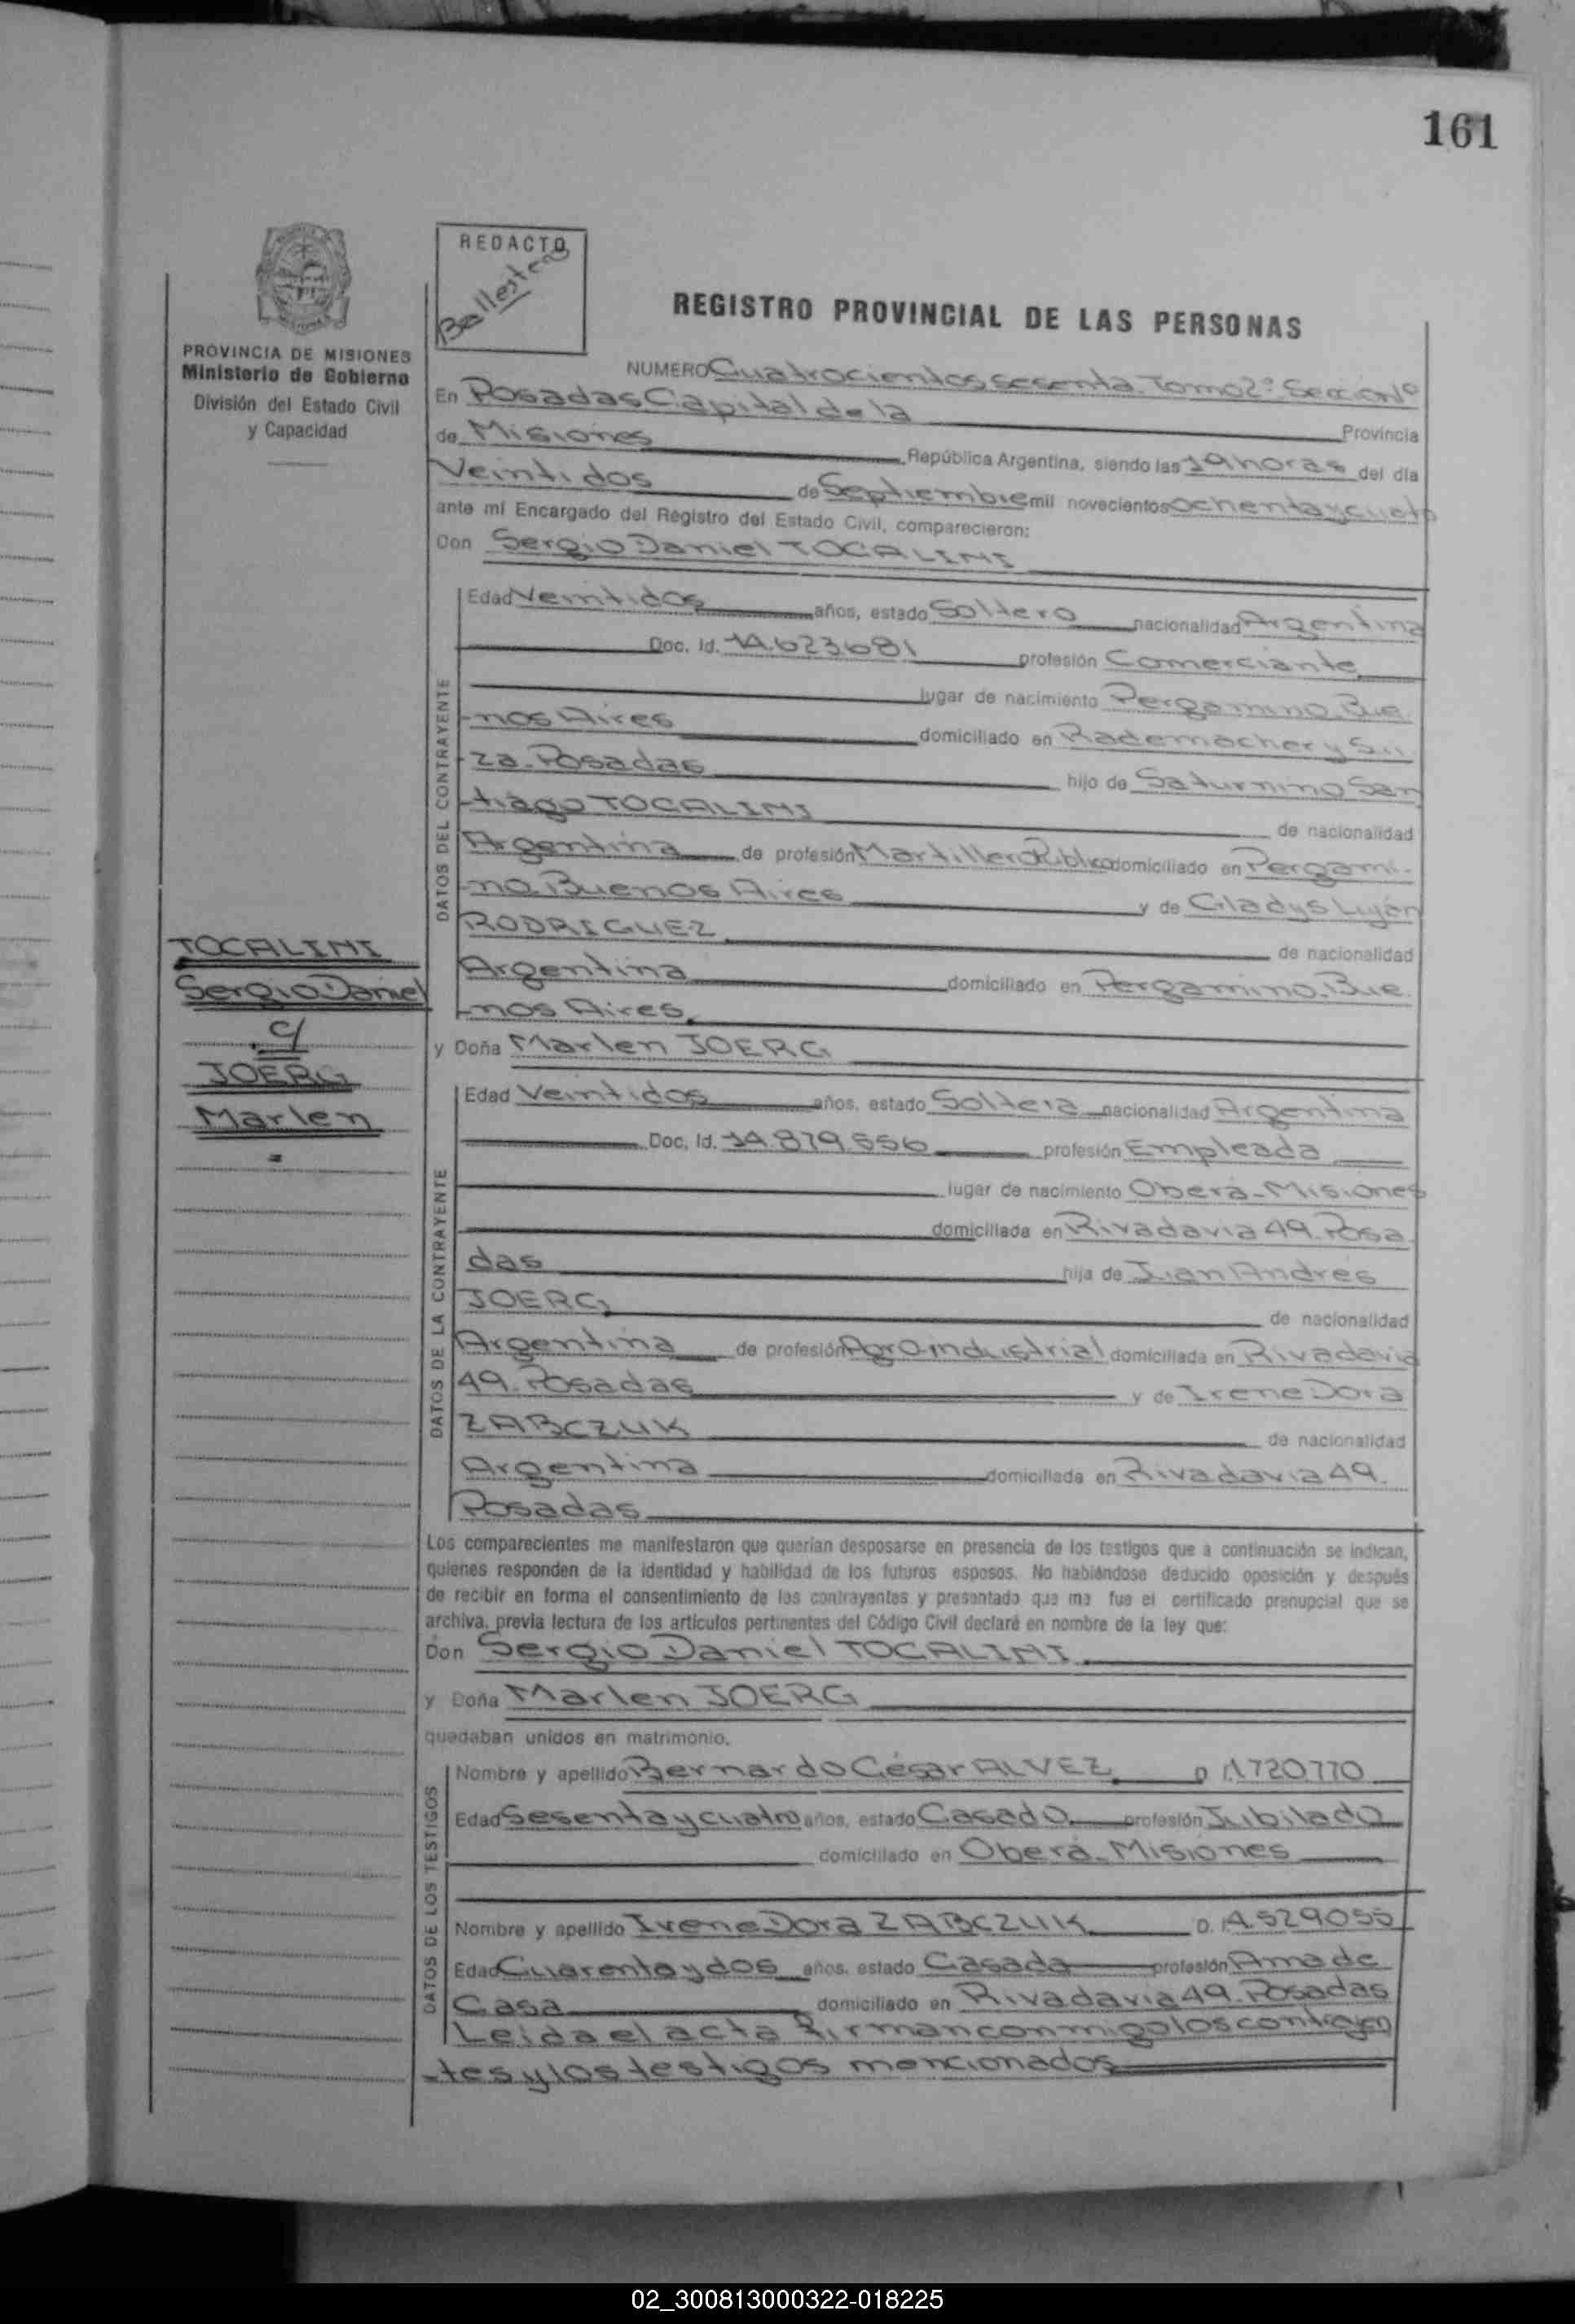 161
REDACTO
Ballesteros
REGISTRO PROVINCIAL DE LAS PERSONAS
PROVINCIA DE MISIONES
Ministerio de Gobierno
División del Estado Civil
y Capacidad
NUMERO Cuatrocientos sesenta. Tomo 2º Sección 1º
En Posadas Capital de la Provincia
de Misiones República Argentina, siendo las 19 horas del día
Veintidos de Septiembre mil novecientos ochenta y cuatro
ante mí Encargado del Registro del Estado Civil, comparecieron:
Don Sergio Daniel TOCALINI
DATOS DEL CONTRAYENTE
Edad Veintidos años, estado Soltero nacionalidad Argentina
Doc. Id. 14.623681 profesión Comerciante
lugar de nacimiento Pergamino. Bue
nos Aires domiciliado en Rademacher y Sui
za. Posadas hijo de Saturnino San
tiago TOCALINI de nacionalidad
Argentina de profesión Martillero Público domiciliado en Pergami-
no. Buenos Aires y de Gladys Luján
RODRIGUEZ de nacionalidad
Argentina domiciliado en Pergamino. Bue
nos Aires.
TOCALINI
Sergio Daniel
c/
JOERG
Marlen
y Doña Marlen JOERG
DATOS DE LA CONTRAYENTE
Edad Veintidos años, estado Soltera nacionalidad Argentina
Doc. Id. 14.879.556 profesión Empleada
lugar de nacimiento Oberá-Misiones
domiciliada en Rivadavia 49. Posa
das hija de Juan Andrés
JOERG de nacionalidad
Argentina de profesión Agroindustrial domiciliada en Rivadavia
49. Posadas y de Irene Dora
ZABCZUK de nacionalidad
Argentina domiciliada en Rivadavia 49.
Posadas
Los comparecientes me manifestaron que querían desposarse en presencia de los testigos que a continuación se indican,
quienes responden de la identidad y habilidad de los futuros esposos. No habiéndose deducido oposición y después
de recibir en forma el consentimiento de los contrayentes y presentado que me fue el certificado prenupcial que se
archiva, previa lectura de los artículos pertinentes del Código Civil declaré en nombre de la ley que:
Don Sergio Daniel TOCALINI
y Doña Marlen JOERG
quedaban unidos en matrimonio.
DATOS DE LOS TESTIGOS
Nombre y apellido Bernardo César ALVEZ D. 1.720.770
Edad Sesenta y cuatro años, estado Casado profesión Jubilado
domiciliado en Oberá-Misiones
Nombre y apellido Irene Dora ZABCZUK D. 4.529055
Edad Cuarenta y dos años, estado Casada profesión Ama de
Casa domiciliado en Rivadavia 49. Posadas
Leida el acta firman conmigo los contrayen
-tes y los testigos mencionados
02_300813000322-018225